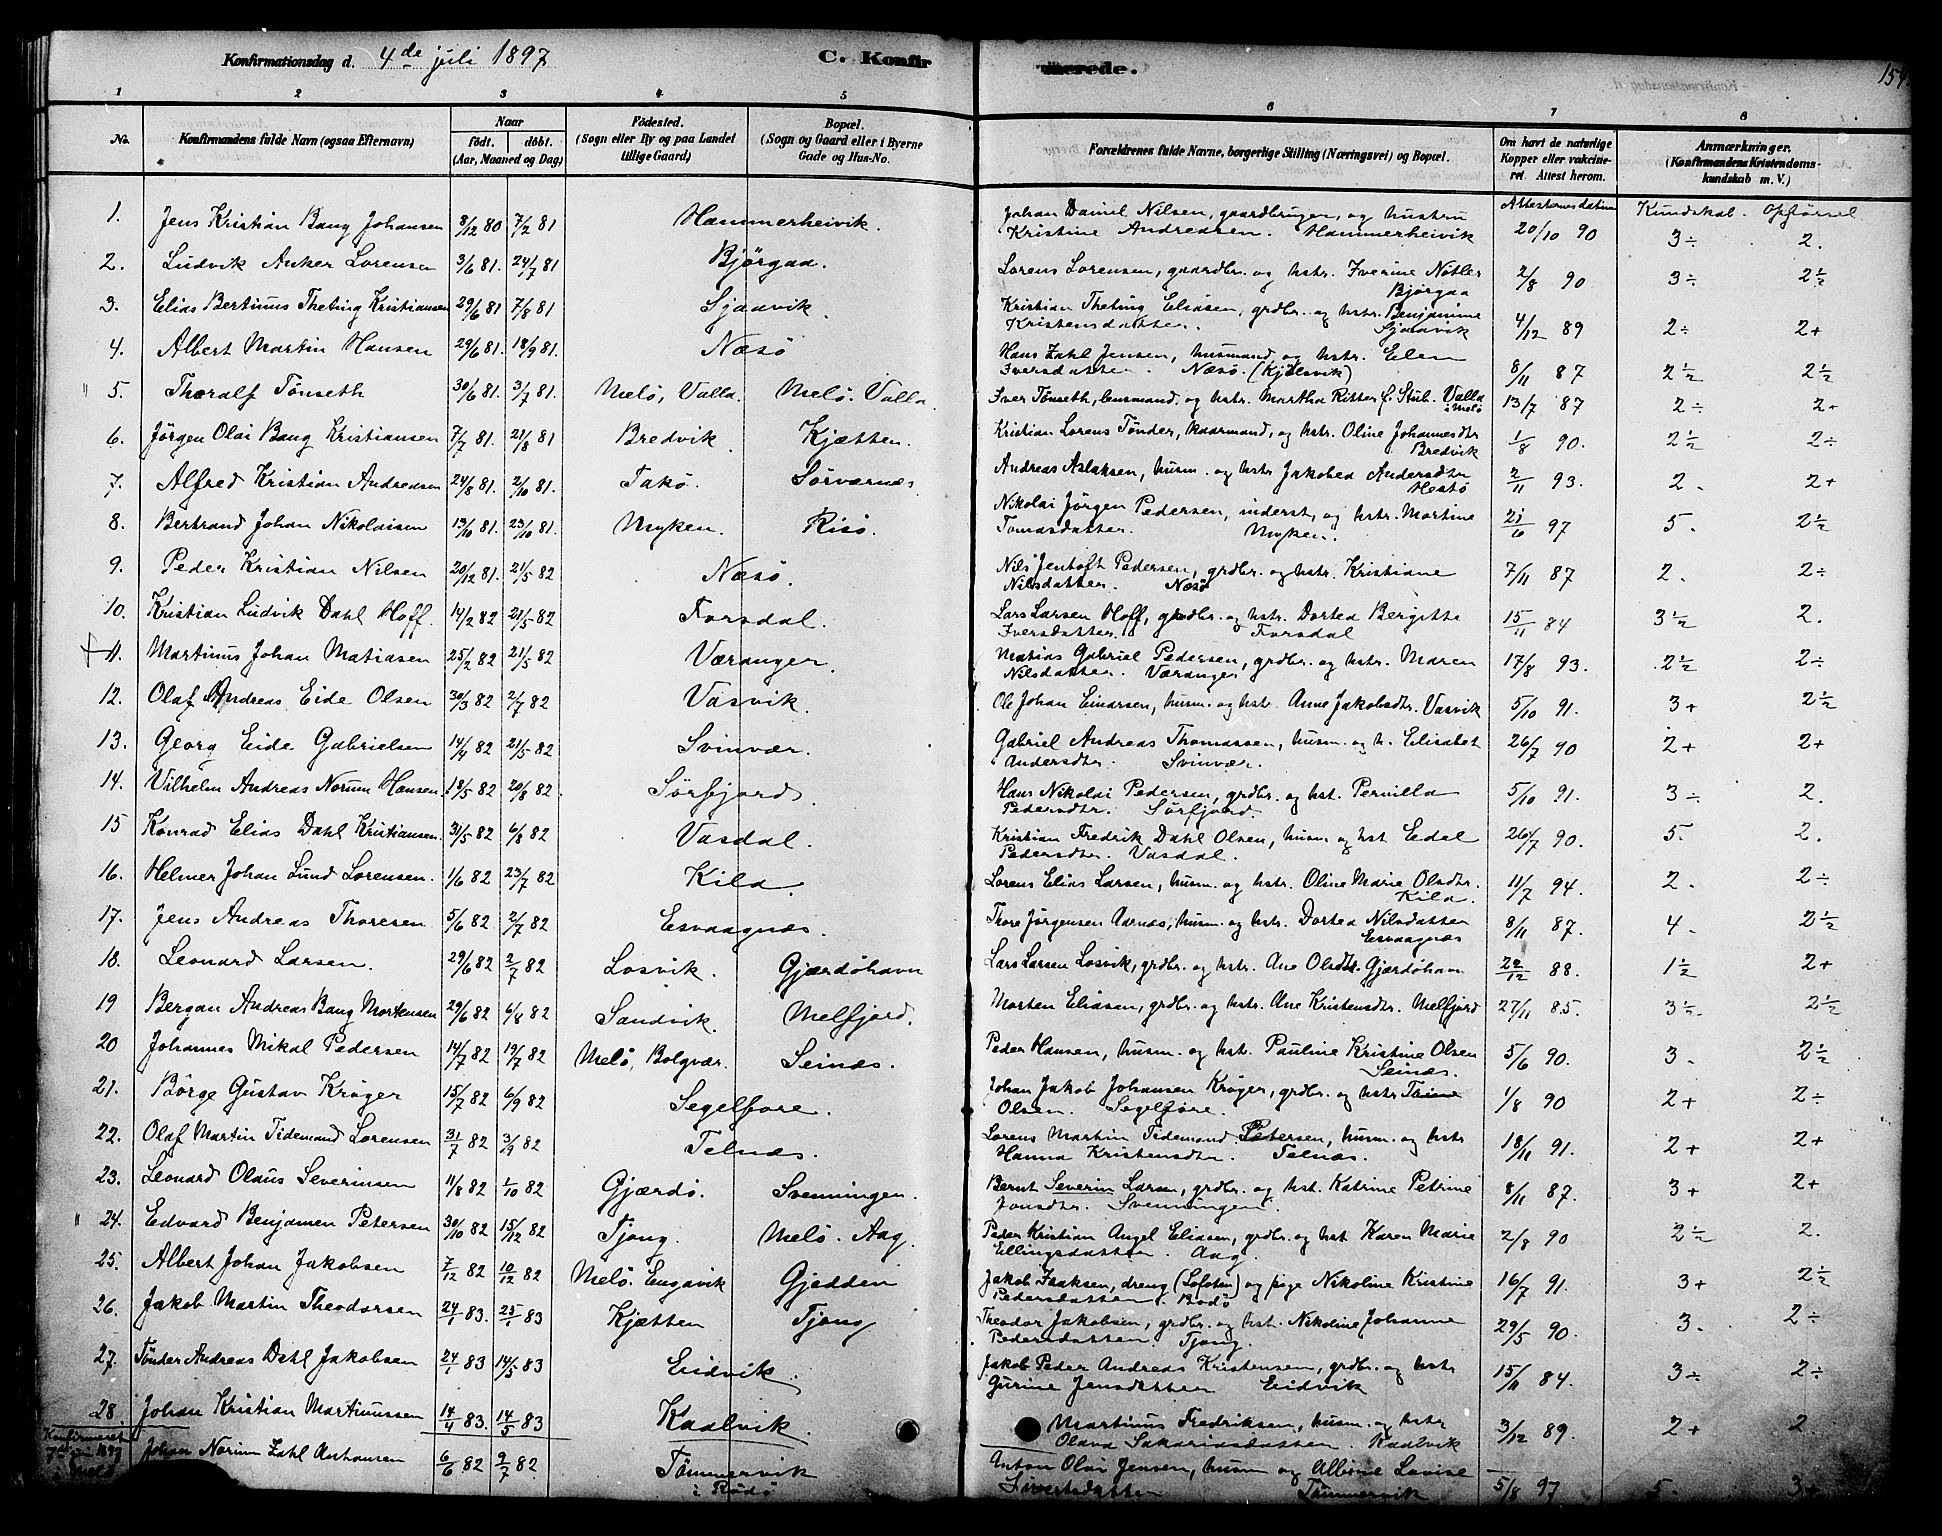 Konfirmationsdag d. 4de juli 1897
C. Konfirmerede.
154
1 2 3 4 5 6 7 8
No.
Konfirmandens fulde Navn (ogsaa Efternavn)
Naar
født. døbt.
(Aar, Maaned og Dag)
Fødested.
(Sogn eller By og paa Landet
tillige Gaard)
Bopæl.
(Sogn og Gaard eller i Byerne
Gade og Hus-No.
Forældrenes fulde Navne, borgerlige Stilling (Næringsvei) og Bopæl.
Om havt de naturlige
Kopper eller vakcine-
ret Attest herom.
Anmærkninger.
(Konfirmandens Kristendoms-
kundskab m. V.)
Attesternes datum Kundskab. Opførsel
1. Jens Kristian Bang Johansen 8/12 80 7/2 81 Hammerheivik. Johan Daniel Nilsen, gaardbruger, og hustru
Kristine Andreasen. Hammerheivik 20/10 90 3÷ 2.
2. Ludvik Anker Lorensen 3/6 81. 24/7 81 Bjørgaa. Lorens Lorensen, gaardbr. og hstr. Iverine Nøtler
Bjørgaa 2/8 90 3÷ 2½
3. Elias Bertinus Thebing Kristiansen 29/6 81 7/8 81 Sjaavik. Kristian Thebing Eliasen, grdbr. og hstr. Benjamine
Kristensdatter. Sjaavik 4/12 89 2÷ 2+
4. Albert Martin Hansen 29/6 81. 18/9 81. Næsø Hans Zahl Jensen, husmand og hstr. Elen
Iversdatter. Næsø. (Kjølsvik) 8/11 87 2½ 2½
" 5. Thoralf Tønseth 30/6 81. 3/7 81 Melö, Valla. Melö. Valla. Iver Tønseth, lensmand, og hstr. Martha Ritter f. Stub. Valla
i Melö 13/7 87 2÷ 2+
6. Jörgen Olai Bang Kristiansen 7/7 81. 21/8 81 Bredvik Kjætten. Kristian Lorens Tønder, kaarmand, og hstr. Oline Johannesdtr
Bredvik 1/8 90. 2½ 2÷
7. Alfred Kristian Andreasen 24/8 81. 2/10 81. Takö. Sörværnes. Andreas Aslaksen, husm. og hstr Jakobea Andersdtr
Hestö 2/11 93. 2. 2+
8. Bertrand Johan Nikolaisen 13/10 81. 23/10 81. Myken. Risö. Nikolai Jörgen Pedersen, inderst, og hstr. Martine
Tomasdatter. Myken. 21/6 97 5. 2½
9. Peder Kristian Nilsen 20/12 81. 21/5 82 Næsö. Nils Jentoft Pedersen, grdbr. og hstr. Kristiane
Nilsdatter. Næsö 7/11 87 2. 2÷
10. Kristian Ludvik Dahl Hoff. 14/2 82 21/5 82 Forsdal. Lars Larsen Hoff, grdbr. og hstr. Dortea Bergitte
Iversdatter. Forsdal 15/11 84 3½ 2.
11. Martinus Johan Matiasen 25/2 82 21/5 82 Væranger. Matias Gabriel Pedersen, grdbr. og hstr. Maren
Nilsdatter. Væranger 17/8 93. 2½ 2÷
12. Olaf Andreas Eide Olsen 30/3 82 2/7 82 Vasvik. Ole Johan Einarsen, husm. og hstr. Anne Jakobsdtr. Vasvik 5/10 91. 3+ 2½
13. Georg Eide Gabrielsen 14/4 82 21/5 82 Svinvær. Gabriel Andreas Thomassen, husm. og h. Elisabet
Andersdtr. Svinvær. 26/7 90 2+ 2+
14. Vilhelm Andreas Norum Hansen. 18/5 82 20/8 82. Sörfjord. Hans Nikolai Pedersen, grdbr. og hst. Pernilla
Pedersdtr. Sörfjord. 5/10 91. 3÷ 2.
15 Konrad Elias Dahl Kristiansen. 31/5 82 6/8 82 Vasdal. Kristian Fredrik Dahl Olsen, husm. og hst Edel
Pedersdtr. Vasdal. 26/7 90. 5. 2.
16. Helmer Johan Lund Lorensen. 1/6 82 23/7 82 Kila. Lorens Elias Larsen, husm. og hstr. Oline Marie Olsdtr.
Kila. 11/7 94. 2. 2÷
17. Jens Andreas Thoresen 5/6 82 2/7 82 Esvaagnæs. Thore Jörgensen Aarnes, husm. og hstr. Dortea Nilsdatter
Esvaagnæs 8/11 87. 4. 2½
18. Leonard Larsen. 29/6 82 2/7 82 Losvik. Gjærdöhavn Lars Larsen Losvik, grdbr. og hstr. Ane Olsdtr. Gjærdöhavn 22/12 88. 1½ 2+
19 Bergan Andreas Bang Mortensen 29/6 82 6/8 82 Sandvik. Melfjord. Morten Eliasen, grdbr. og hstr. Ane Kristensdtr. Melfjord 27/11 85. 3½ 2½
20 Johannes Mikal Pedersen 14/7 82 19/7 82 Melö, Bolgvær. Seinæs. Peder Hansen, husm. og hstr. Pauline Kristine Olsen
Seinæs. 5/6 90. 3. 2½
21. Börge Gustav Kröger 15/7 82 6/9 82 Segelfore. Johan Jakob Johansen Kröger, grdbr. og hstr Trine
Olsen. Segelföre. 1/8 90 2+ 2÷
22. Olaf Martin Tidemand Lorensen 31/7 82 3/9 82 Telnæs. Lorens Martin Tidemand Petersen, husm. og hstr
Hanna Kristensdtr. Telnæs. 18/11 91. 2+ 2+
23. Leonard Olaus Severinsen 11/8 82 1/10 82 Gjærdö. Svenningen. Bernt Severin Larsen, grdbr. og hst. Katrine Petrine
Jonsdtr. Svenningen. 8/11 87. 3+ 2+
" 24. Edvard Benjamen Petersen 30/10 82 15/12 82 Tjong. Melö. Aag. Peder Kristian Angel Eliasen, grdbr. og hst Karen Marie
Ellingsdatter. Aag. 2/8 90 2½ 2.
25. Albert Johan Jakobsen 7/12 82 10/12 82 Melö. Engavik Gjedden Jakob Isaksen, dreng (Lofoten) og pige Nikoline Kristine
Pedersdatter. Bodö 16/7 91. 3+ 2½
26. Jakob Martin Theodorsen 24/1 83. 25/1 83 Kjætten Tjong Theodor Jakobsen, grdbr. og hst. Nikoline Johanne
Pedersdatter. Tjong. 29/5 90. 3. 2÷
27. Tönder Andreas Dahl Jakobsen 24/1 83 14/5 83 Eidvik. Jakob Peder Andreas Kristensen, grdbr. og hstr
Gurine Jensdatter Eidvik 15/11 84. 3÷ 2÷
28. Johan Kristian Martinussen 14/4 83. 14/5 83 Kaalvik. Martinus Fredriksen, husm. og hstr
Olava Sakariasdatter. Kaalvik 3/12 89. 2+ 2
Konfirmeret
1897
i Melö
Johan Norum Zahl 6/6 82 9/7 82 Tömmervik
i Rödö Anton Olai Jensen, husm og Albine Lovise
Sivertsdatter Tömmervik 5/8 97 5. 3+